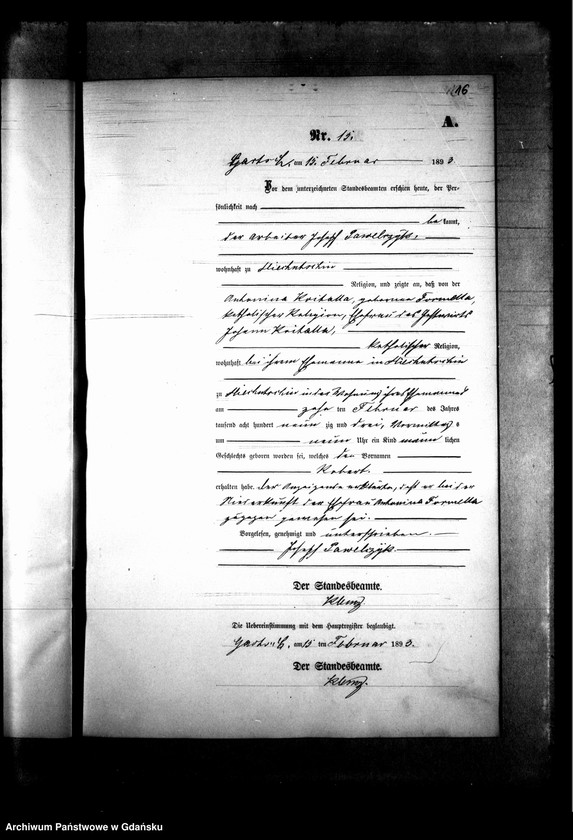 16
A.
Nr. 15.
am 15. Februar 1893
Vor dem unterzeichneten Standesbeamten erschien heute, der Per-
sönlichkeit nach
bekannt,
der Arbeiter Joseph Pawelczyk,
wohnhaft zu
Religion, und zeigte an, daß von der
Antonina geborene Formella,
katholischer Religion, Ehefrau des
Johann
katholischer Religion,
wohnhaft bei ihrem Ehemanne in
zu in der Wohnung ihres Ehemannes
am zehn ten Februar des Jahres
tausend acht hundert neun zig und drei, Vormittags
um neun Uhr ein Kind männlichen
Geschlechts geboren worden sei, welches den Vornamen
Robert.
erhalten habe. Der Anzeigende erklärte, daß er bei der
Niederkunft der Ehefrau Antonina Formella
zugegen gewesen sei.
Vorgelesen, genehmigt und unterschrieben.
Joseph Pawelczyk.
Der Standesbeamte.
Die Uebereinstimmung mit dem Hauptregister beglaubigt.
am 15 ten Februar 1893.
Der Standesbeamte.
Archiwum Państwowe w Gdańsku